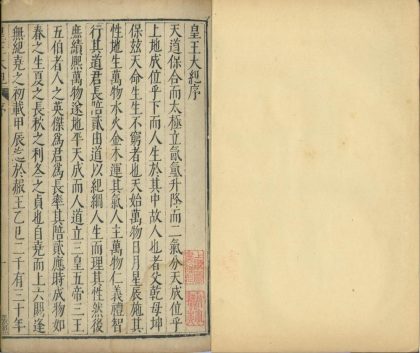 皇王大紀序
天道保合而太極立氤氳升降而二氣分天成位乎
上地成位乎下而人生於其中故人也者父乾母坤
保玆天命生生不窮者也天始萬物日月星辰施其
性地生萬物水火金木運其氣人主萬物仁義禮智
行其道君長陪貳由道以紀綱人生而理其性然後
庶績熙萬物遂地平天成而人道立三皇五帝三王
五伯者人之英傑爲君爲長率其陪貳應時成物如
春之生夏之長秋之利冬之貞也自堯而上六閼逢
無紀堯之初載甲辰迄於赧王乙巳二千有三十年
皇王大紀 序